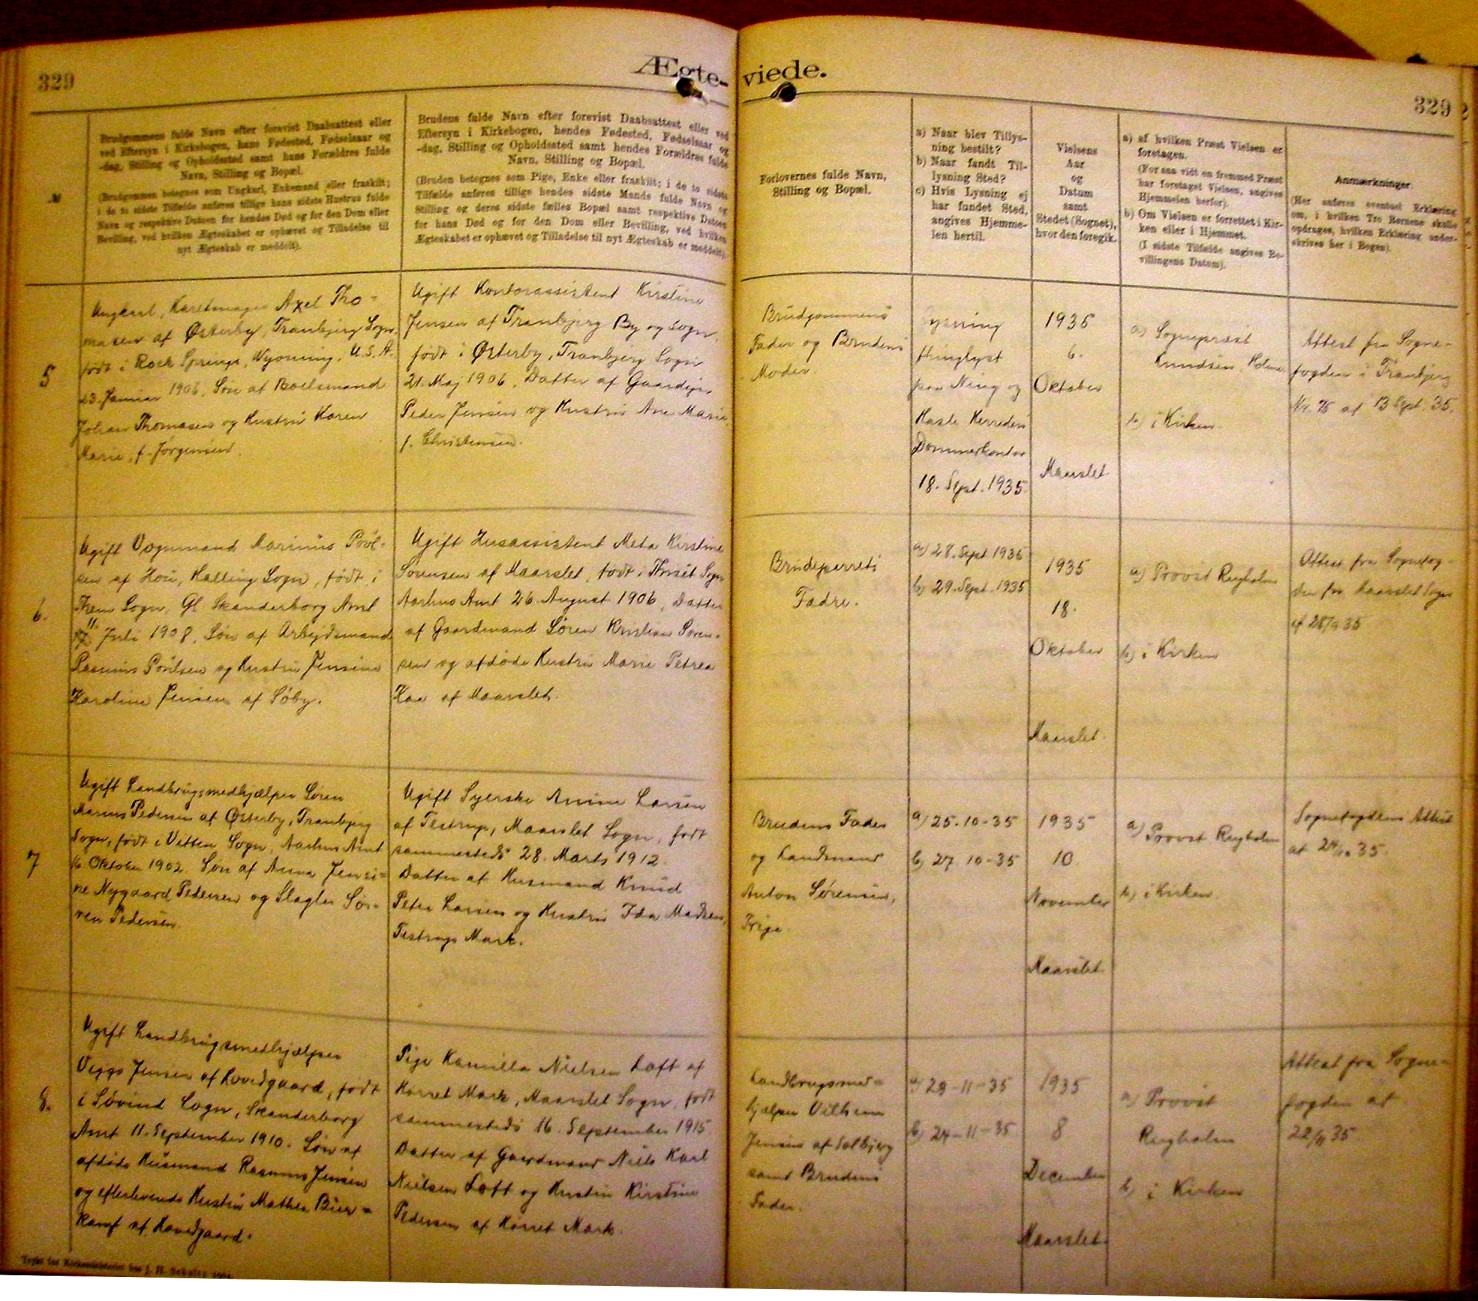 329
Ægte-
viede.
329
№
Brudgommens fulde Navn efter forevist Daabsattest eller
ved Eftersyn i Kirkebogen, hans Fødested, Fødselsaar og
-dag, Stilling og Opholdssted samt hans Forældres fulde
Navn, Stilling og Bopæl.
(Brudgommen betegnes som Ungkarl, Enkemand eller fraskilt;
i de to sidste Tilfælde anføres tillige hans sidste Hustrus fulde
Navn og respektive Datoen for hendes Død og for den Dom eller
Bevilling, ved hvilken Ægteskabet er ophævet og Tilladelse til
nyt Ægteskab er meddelt).
Brudens fulde Navn efter forevist Daabsattest eller ved
Eftersyn i Kirkebogen, hendes Fødested, Fødselsaar og
-dag, Stilling og Opholdssted samt hendes Forældres fulde
Navn, Stilling og Bopæl.
(Bruden betegnes som Pige, Enke eller fraskilt; i de to sidste
Tilfælde anføres tillige hendes sidste Mands fulde Navn og
Stilling og deres sidste fælles Bopæl samt respektive Datoen
for hans Død og for den Dom eller Bevilling, ved hvilken
Ægteskabet er ophævet og Tilladelse til nyt Ægteskab er meddelt).
Forlovernes fulde Navn,
Stilling og Bopæl.
a) Naar blev Tillys-
ning bestilt?
b) Naar fandt Til-
lysning Sted?
c) Hvis Lysning ej
har fundet Sted,
angives Hjemme-
len hertil.
Vielsens
Aar
og
Datum
samt
Stedet (Sognet),
hvor den foregik.
a) af hvilken Præst Vielsen er
foretagen.
(For saa vidt en fremmed Præst
har foretaget Vielsen, angives
Hjemmelen herfor).
b) Om Vielsen er forrettet i Kir-
ken eller i Hjemmet.
(I sidste Tilfælde angives Be-
villingens Datum).
Anmærkninger.
(Her anføres eventuel Erklæring
om, i hvilken Tro Børnene skulle
opdrages, hvilken Erklæring under-
skrives her i Bogen).
5
Ungkarl, Karetmager Axel Tho-
masen af Østerby, Tranbjerg Sogn,
født i Rock Springs, Wyoming, U.S.A.
23. Januar 1906. Søn af Boelsmand
Johan Thomasen og Hustru Karen
Marie, f. Jørgensen.
Ugift Kontorassistent Kirstine
Jensen af Tranbjerg By og Sogn,
født i Østerby, Tranbjerg Sogn
21. Maj 1906. Datter af Gaardejer
Peder Jensen og Hustru Ane Marie
f. Christensen.
Brudgommens
Fader og Brudens
Moder.
Lysning
tinglyst
paa Ning og
Hasle Herreders
Dommerkontor
18. Sept. 1935.
1935
6.
Oktober
Maarslet
a) Sognepræst
Knudsen, Holme
b) i Kirken.
Attest fra Sogne-
fogden i Tranbjerg
Nr. 75 af 13 Sept. 35.
6.
Ugift Vognmand Marinus Poul-
sen af Hou, Halling Sogn, født i
Them Sogn, Gl. Skanderborg Amt
11. Juli 1908. Søn af Arbejdsmand
Rasmus Poulsen og Hustru Jensine
Karoline Jensen af Søby.
Ugift Husassistent Meta Kirstine
Sørensen af Maarslet, født i Tiset Sogn
Aarhus Amt 26. August 1906, Datter
af Gaardmand Søren Kristian Søren-
sen og afdøde Hustru Marie Petrea
Kaa af Maarslet.
Brudeparrets
Fadre.
a) 28. Sept. 1935
b) 29. Sept. 1935
1935
18.
Oktober
Maarslet.
a) Provst Rugholm
b) i Kirken
Attest fra Sognefog-
den for Maarslet Sogn
af 28/9 35
7
Ugift Landbrugsmedhjælper Søren
Marius Pedersen af Østerby, Tranbjerg
Sogn, født i Vitten Sogn, Aarhus Amt
16 Oktober 1902. Søn af Anna Jensi-
ne Nygaard Pedersen og Slagter Sø-
ren Pedersen.
Ugift Syerske Anine Larsen
af Testrup, Maarslet Sogn, født
sammesteds 28. Marts 1912.
Datter af Husmand Knud
Peter Larsen og Hustru Ida Madsen,
Testrup Mark.
Brudens Fader
og Landmand
Anton Sørensen,
Trige.
a) 25-10-35
b) 27.10-35
1935
10.
November
Maarslet
a) Provst Rugholm
b) i Kirken.
Sognefogdens Attest
af 24/10 35.
8.
Ugift Landbrugsmedhjælper
Viggo Jensen af Hovedgaard, født
i Søvind Sogn, Skanderborg
Amt 11. September 1910. Søn af
afdøde Husmand Rasmus Jensen
og efterlevende Hustru Mathea Bier-
kamf af Hovedgaard.
Pige Kamilla Nielsen Loft af
Hørret Mark, Maarslet Sogn, født
sammesteds 16. September 1915.
Datter af Gaardmand Niels Karl
Nielsen Loft og Hustru Kirstine
Pedersen af Hørret Mark.
Landbrugsmed-
hjælper Vilhelm
Jensen af Solbjerg
samt Brudens
Fader.
a) 23-11-35
b) 24-11-35
1935
8
December
Maarslet.
a) Provst
Rugholm
b) i Kirken
Attest fra Sogne-
fogden af
22/11 35
Trykt for Kirkeministeriet hos J. H. Schultz